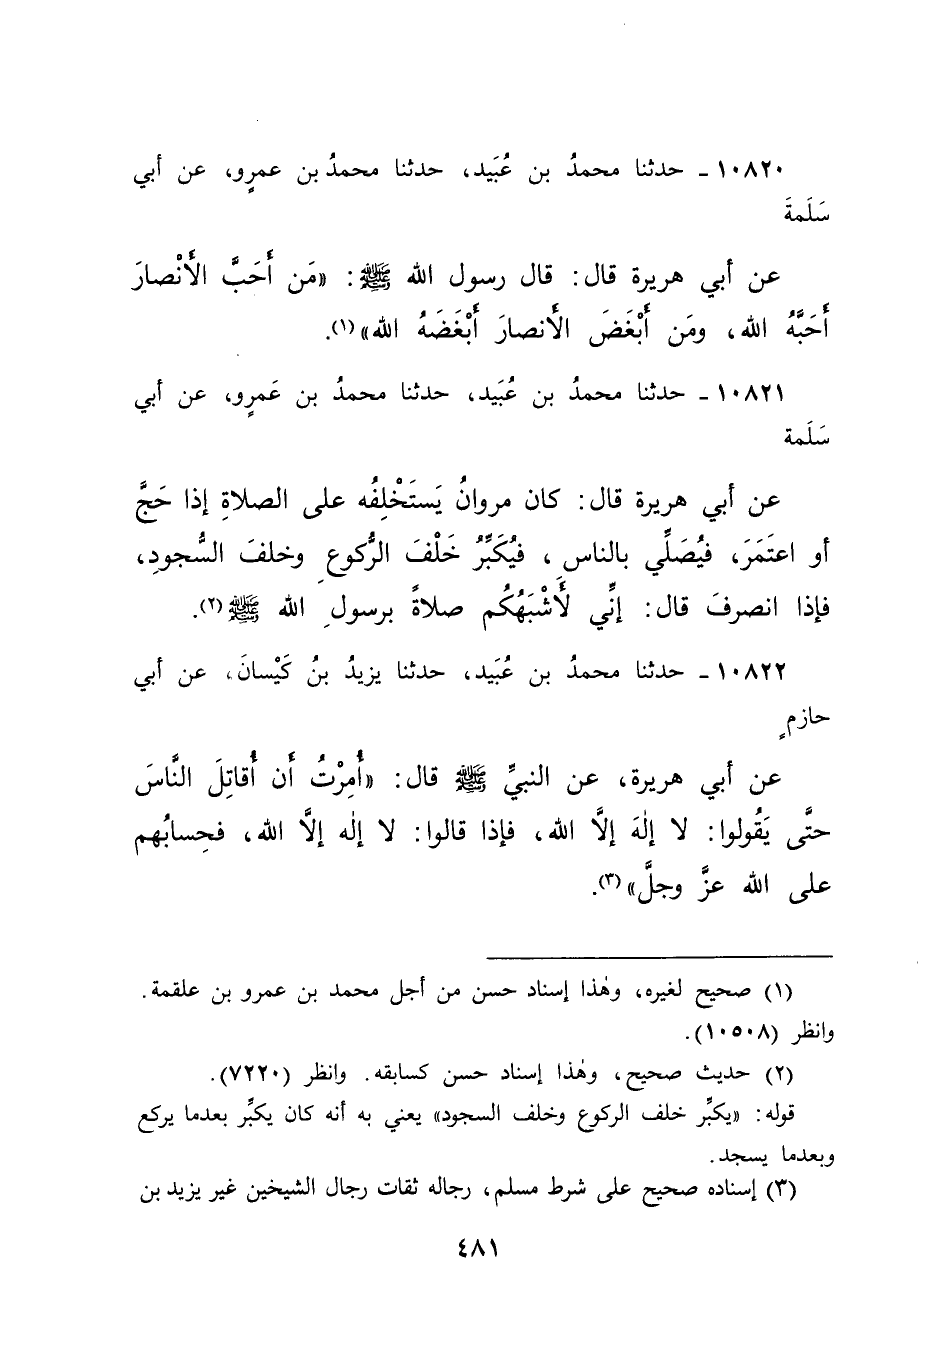 ١٠٨٢٠ ـ حدثنا محمدُ بن عُبَيد، حدثنا محمدُ بن عمرٍو، عن أبي
سَلَمةَ
عن أبي هريرة قال: قال رسول الله ﷺ: «مَن أَحَبَّ الأَنْصارَ
أَحَبَّهُ الله، ومَن أَبْغَضَ الأَنصارَ أَبْغَضَهُ الله»(١).
١٠٨٢١ ـ حدثنا محمدُ بن عُبَيد، حدثنا محمدُ بن عَمرٍو، عن أبي
سَلَمة
عن أبي هريرة قال: كان مروانُ يَستَخْلِفُه على الصلاةِ إذا حَجَّ
أو اعتَمَرَ، فيُصَلِّي بالناسِ، فيُكَبِّرُ خَلْفَ الرُّكوعِ وخلفَ السُّجودِ،
فإذا انصرفَ قال: إنِّي لَأَشْبَهُكُم صلاةً برسولِ الله ﷺ(٢).
١٠٨٢٢ ـ حدثنا محمدُ بن عُبَيد، حدثنا يزيدُ بنُ كَيْسانَ، عن أبي
حازمٍ
عن أبي هريرة، عن النبيِّ ﷺ قال: «أُمِرْتُ أَن أُقاتِلَ النَّاسَ
حتَّى يَقُولوا: لا إلٰهَ إلَّا الله، فإذا قالوا: لا إلٰه إلَّا الله، فحِسابُهم
على الله عزَّ وجلَّ»(٣).
(١) صحيح لغيره، وهٰذا إسناد حسن من أجل محمد بن عمرو بن علقمة.
وانظر (١٠٥٠٨).
(٢) حديث صحيح، وهٰذا إسناد حسن كسابقه. وانظر (٧٢٢٠).
قوله: «يكبِّر خلف الركوع وخلف السجود» يعني به أنه كان يكبِّر بعدما يركع
وبعدما يسجد.
(٣) إسناده صحيح على شرط مسلم، رجاله ثقات رجال الشيخين غير يزيد بن
٤٨١